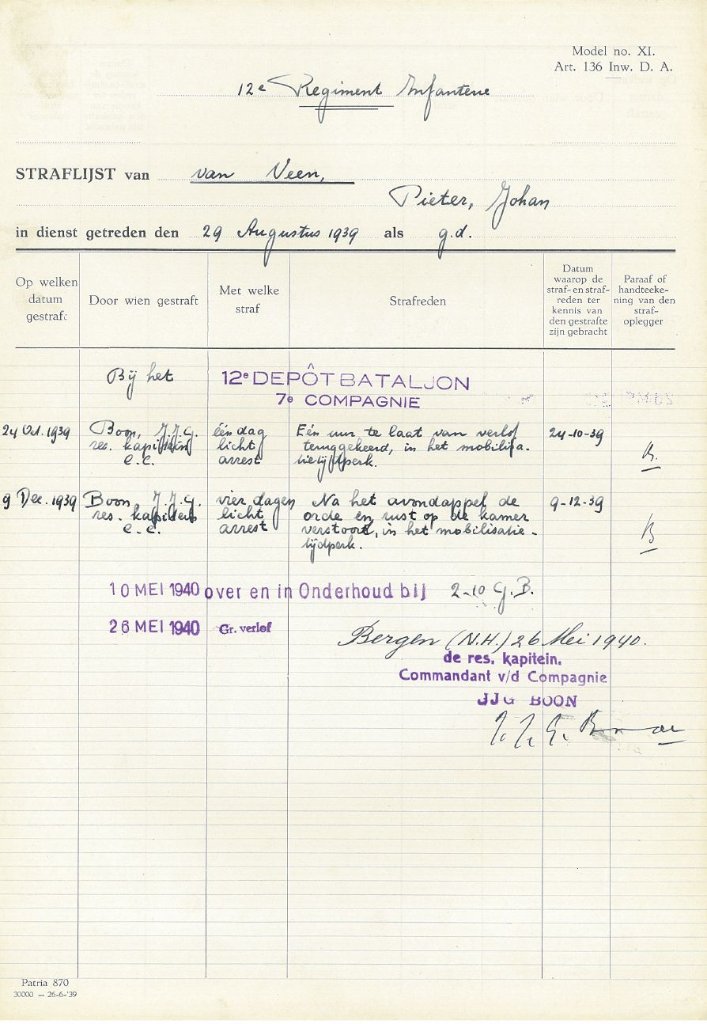 Model no. XI.
Art. 136 Inw. D. A.
12e Regiment Infanterie
STRAFLIJST van van Veen,
Pieter, Johan
in dienst getreden den 29 Augustus 1939 als g.d.
Op welken datum gestraft
Door wien gestraft
Met welke straf
Strafreden
Datum waarop de straf- en strafreden ter kennis van den gestrafte zijn gebracht
Paraaf of handteekening van den strafoplegger
Bij het 12e DEPÔT BATALJON
7e COMPAGNIE
24 Oct. 1939 Boon, J.J.G. ééndag Eén uur te laat van verlof 24-10-39
res. kapitein licht teruggekeerd, in het mobilisa- B.
C.C. arrest tietijdperk.
9 Dec. 1939 Boon, J.J.G. vier dagen Na het avondappel de 9-12-39
res. kapitein licht orde en rust op de kamer B
C.C. arrest verstoord, in het mobilisatie-
tijdperk.
10 MEI 1940 over en in Onderhoud bij 2-10 G.B.
26 MEI 1940 Gr. verlof
Bergen (N.H.) 26 Mei 1940.
de res. kapitein.
Commandant v/d Compagnie
JJG BOON
J. J. G. Boon
Patria 870
30000 — 26-6-'39